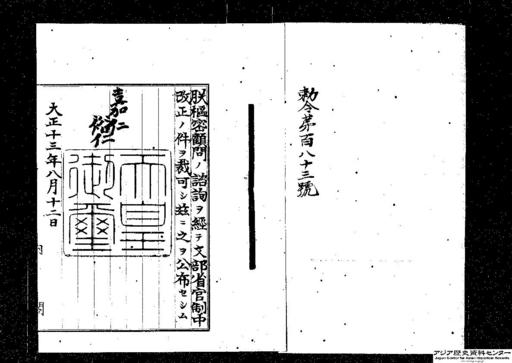 勅令第百八十三號
朕樞密顧問ノ諮詢ヲ經テ文部省官制中
改正ノ件ヲ裁可シ玆ニ之ヲ公布セシム
嘉仁
裕仁
天皇
御璽
大正十三年八月十二日
内閣
アジア歴史資料センター
Japan Center for Asian Historical Records